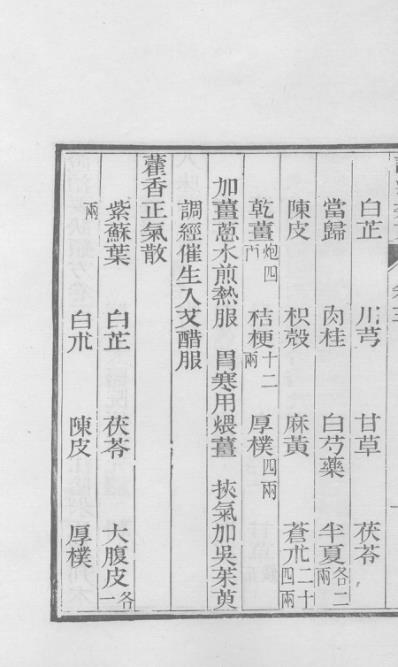 白芷 川芎 甘草 茯苓
當歸 肉桂 白芍藥 半夏各二兩
陳皮 枳殼 麻黃 蒼朮二十四兩
乾薑炮四
桔梗十二兩 厚樸四兩
加薑蔥水煎熱服 胃寒用煨薑 挾氣加吳茱萸
調經催生入艾醋服
藿香正氣散
紫蘇葉 白芷 茯苓 大腹皮各一
兩 白朮 陳皮 厚樸